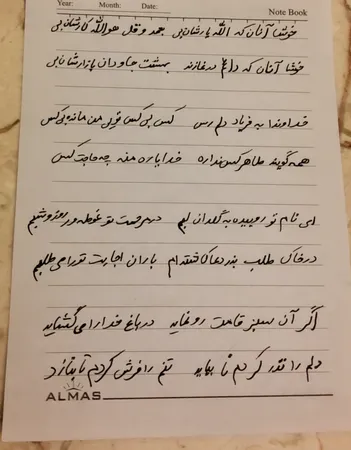 Year: Month: Date:
Note Book
خوشا آنان که الله یارشان بی حمد و قل هو الله کارشان بی
خوشا آنان که دائم در نمازند بهشت جاودان بازارشان بی
خداوندا به فریاد دلم رس کس بی کس تویی من مانده بی کس
همه گویند طاهر کس نداره خدا یار منه چه حاجت کس
ای نام تو روییده به گلدان لبم در مرحمت تو غوطه ور روز و شبم
در خاک طلب بذر دعا کاشته ام باران اجابت تو را می طلبم
اگر آن سبز قامت رو نماید در باغ خدا را می گشاید
دلم را نذر کردم تا بیاید تنم را فرش کردم تا بتازد
ALMAS